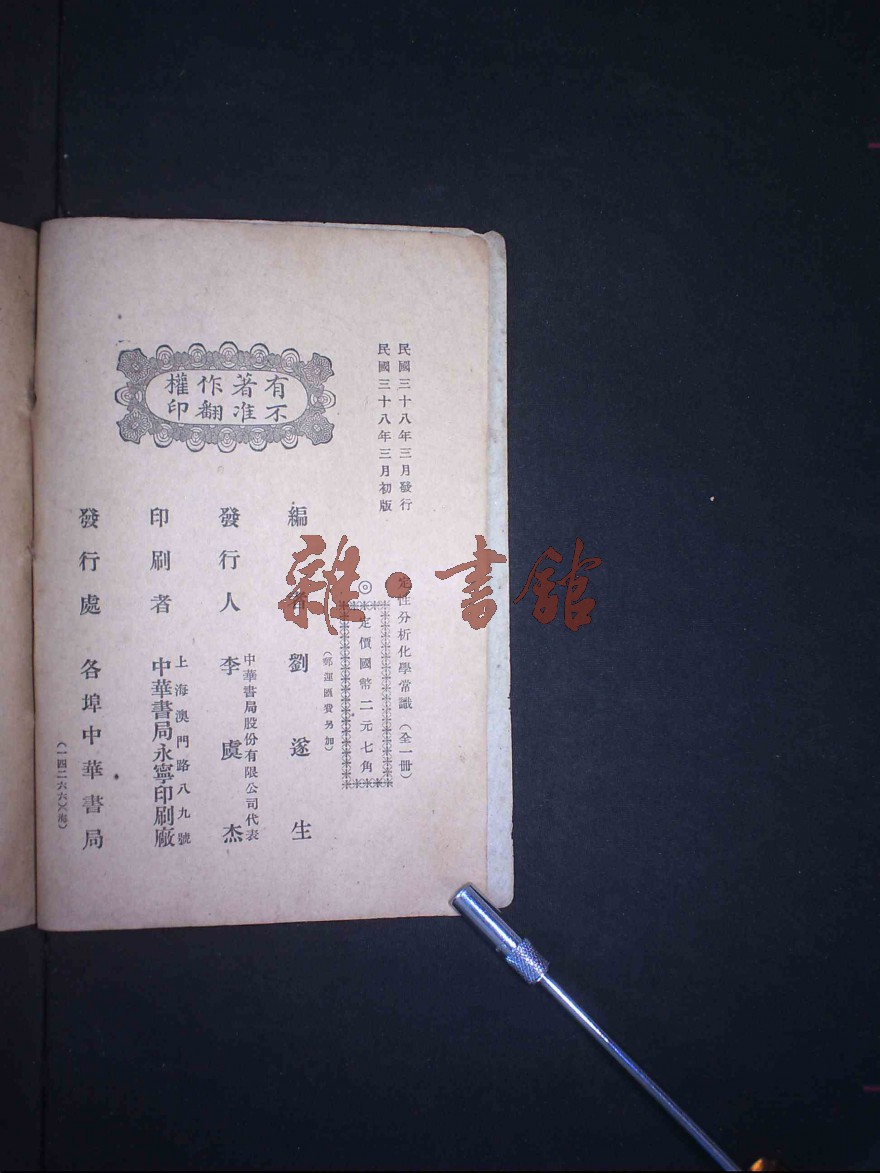 民國三十八年三月發行
民國三十八年三月初版
定性分析化學常識(全一冊)
◎定價國幣二元七角
(郵運匯費另加)
編者 劉遂生
發行人 李虞杰
中華書局股份有限公司代表
印刷者 中華書局永寧印刷廠
上海澳門路八九號
發行處 各埠中華書局
(一四二六六)(海)
有著作權
不准翻印
雜·書館